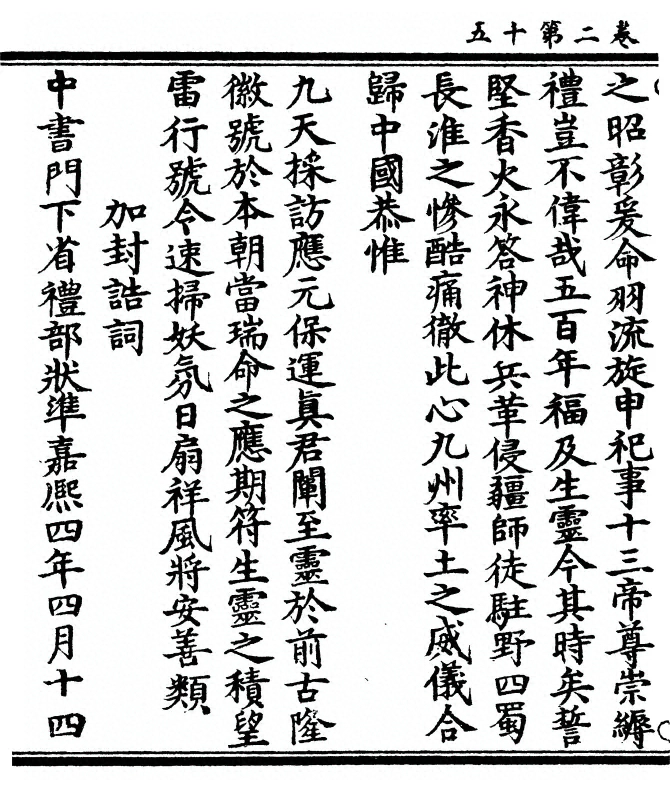 卷二第十五
之昭彰爰命羽流旋申祀事十三帝尊崇縟
禮豈不偉哉五百年福及生靈今其時矣誓
堅香火永答神休兵革侵疆師徒駐野四蜀
長淮之慘酷痛徹此心九州率土之威儀合
歸中國恭惟
九天採訪應元保運眞君闡至靈於前古隆
徽號於本朝當瑞命之應期符生靈之積望
雷行號令速掃妖氛日扇祥風將安善類
加封誥詞
中書門下省禮部狀準嘉熙四年四月十四